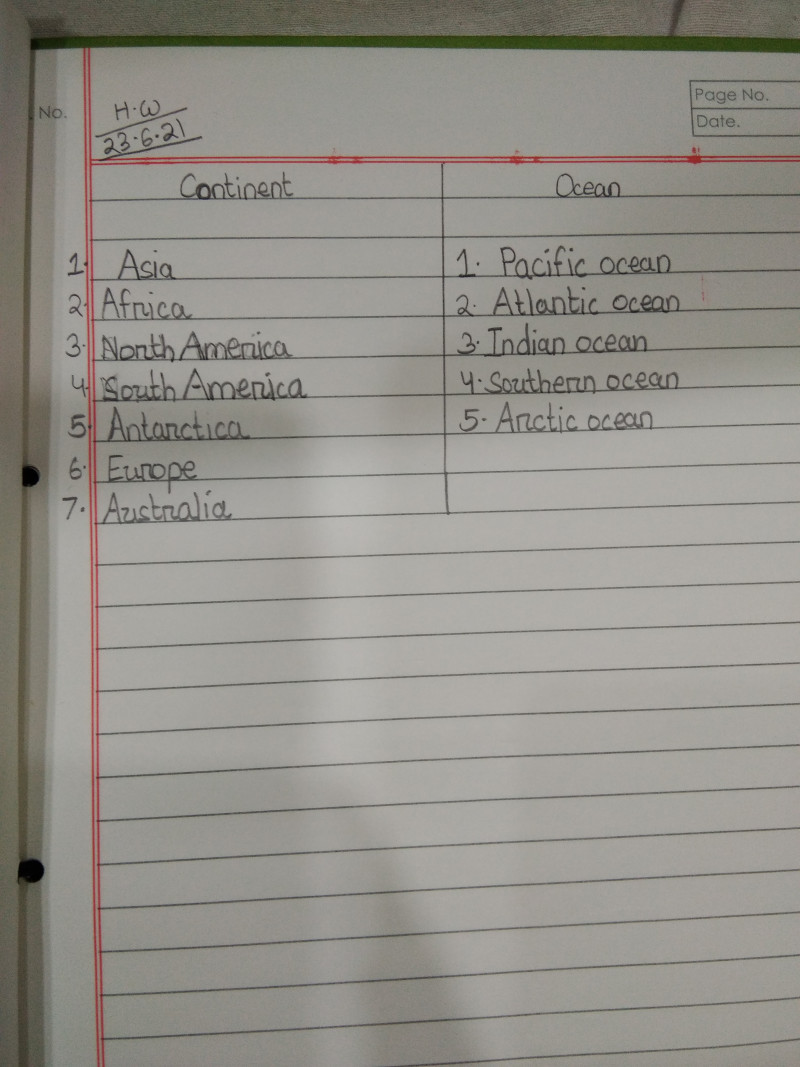 No.
H.W
23.6.21
Page No.
Date.
Continent Ocean
1. Asia 1. Pacific ocean
2. Africa 2. Atlantic ocean
3. North America 3. Indian ocean
4. South America 4. Southern ocean
5. Antarctica 5. Arctic ocean
6. Europe
7. Australia